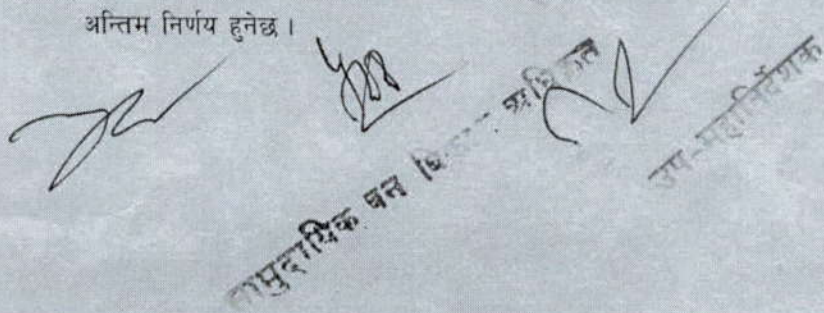 अन्तिम निर्णय हुनेछ ।
सामुदायिक वन विकास अधिकृत
उप-महानिर्देशक